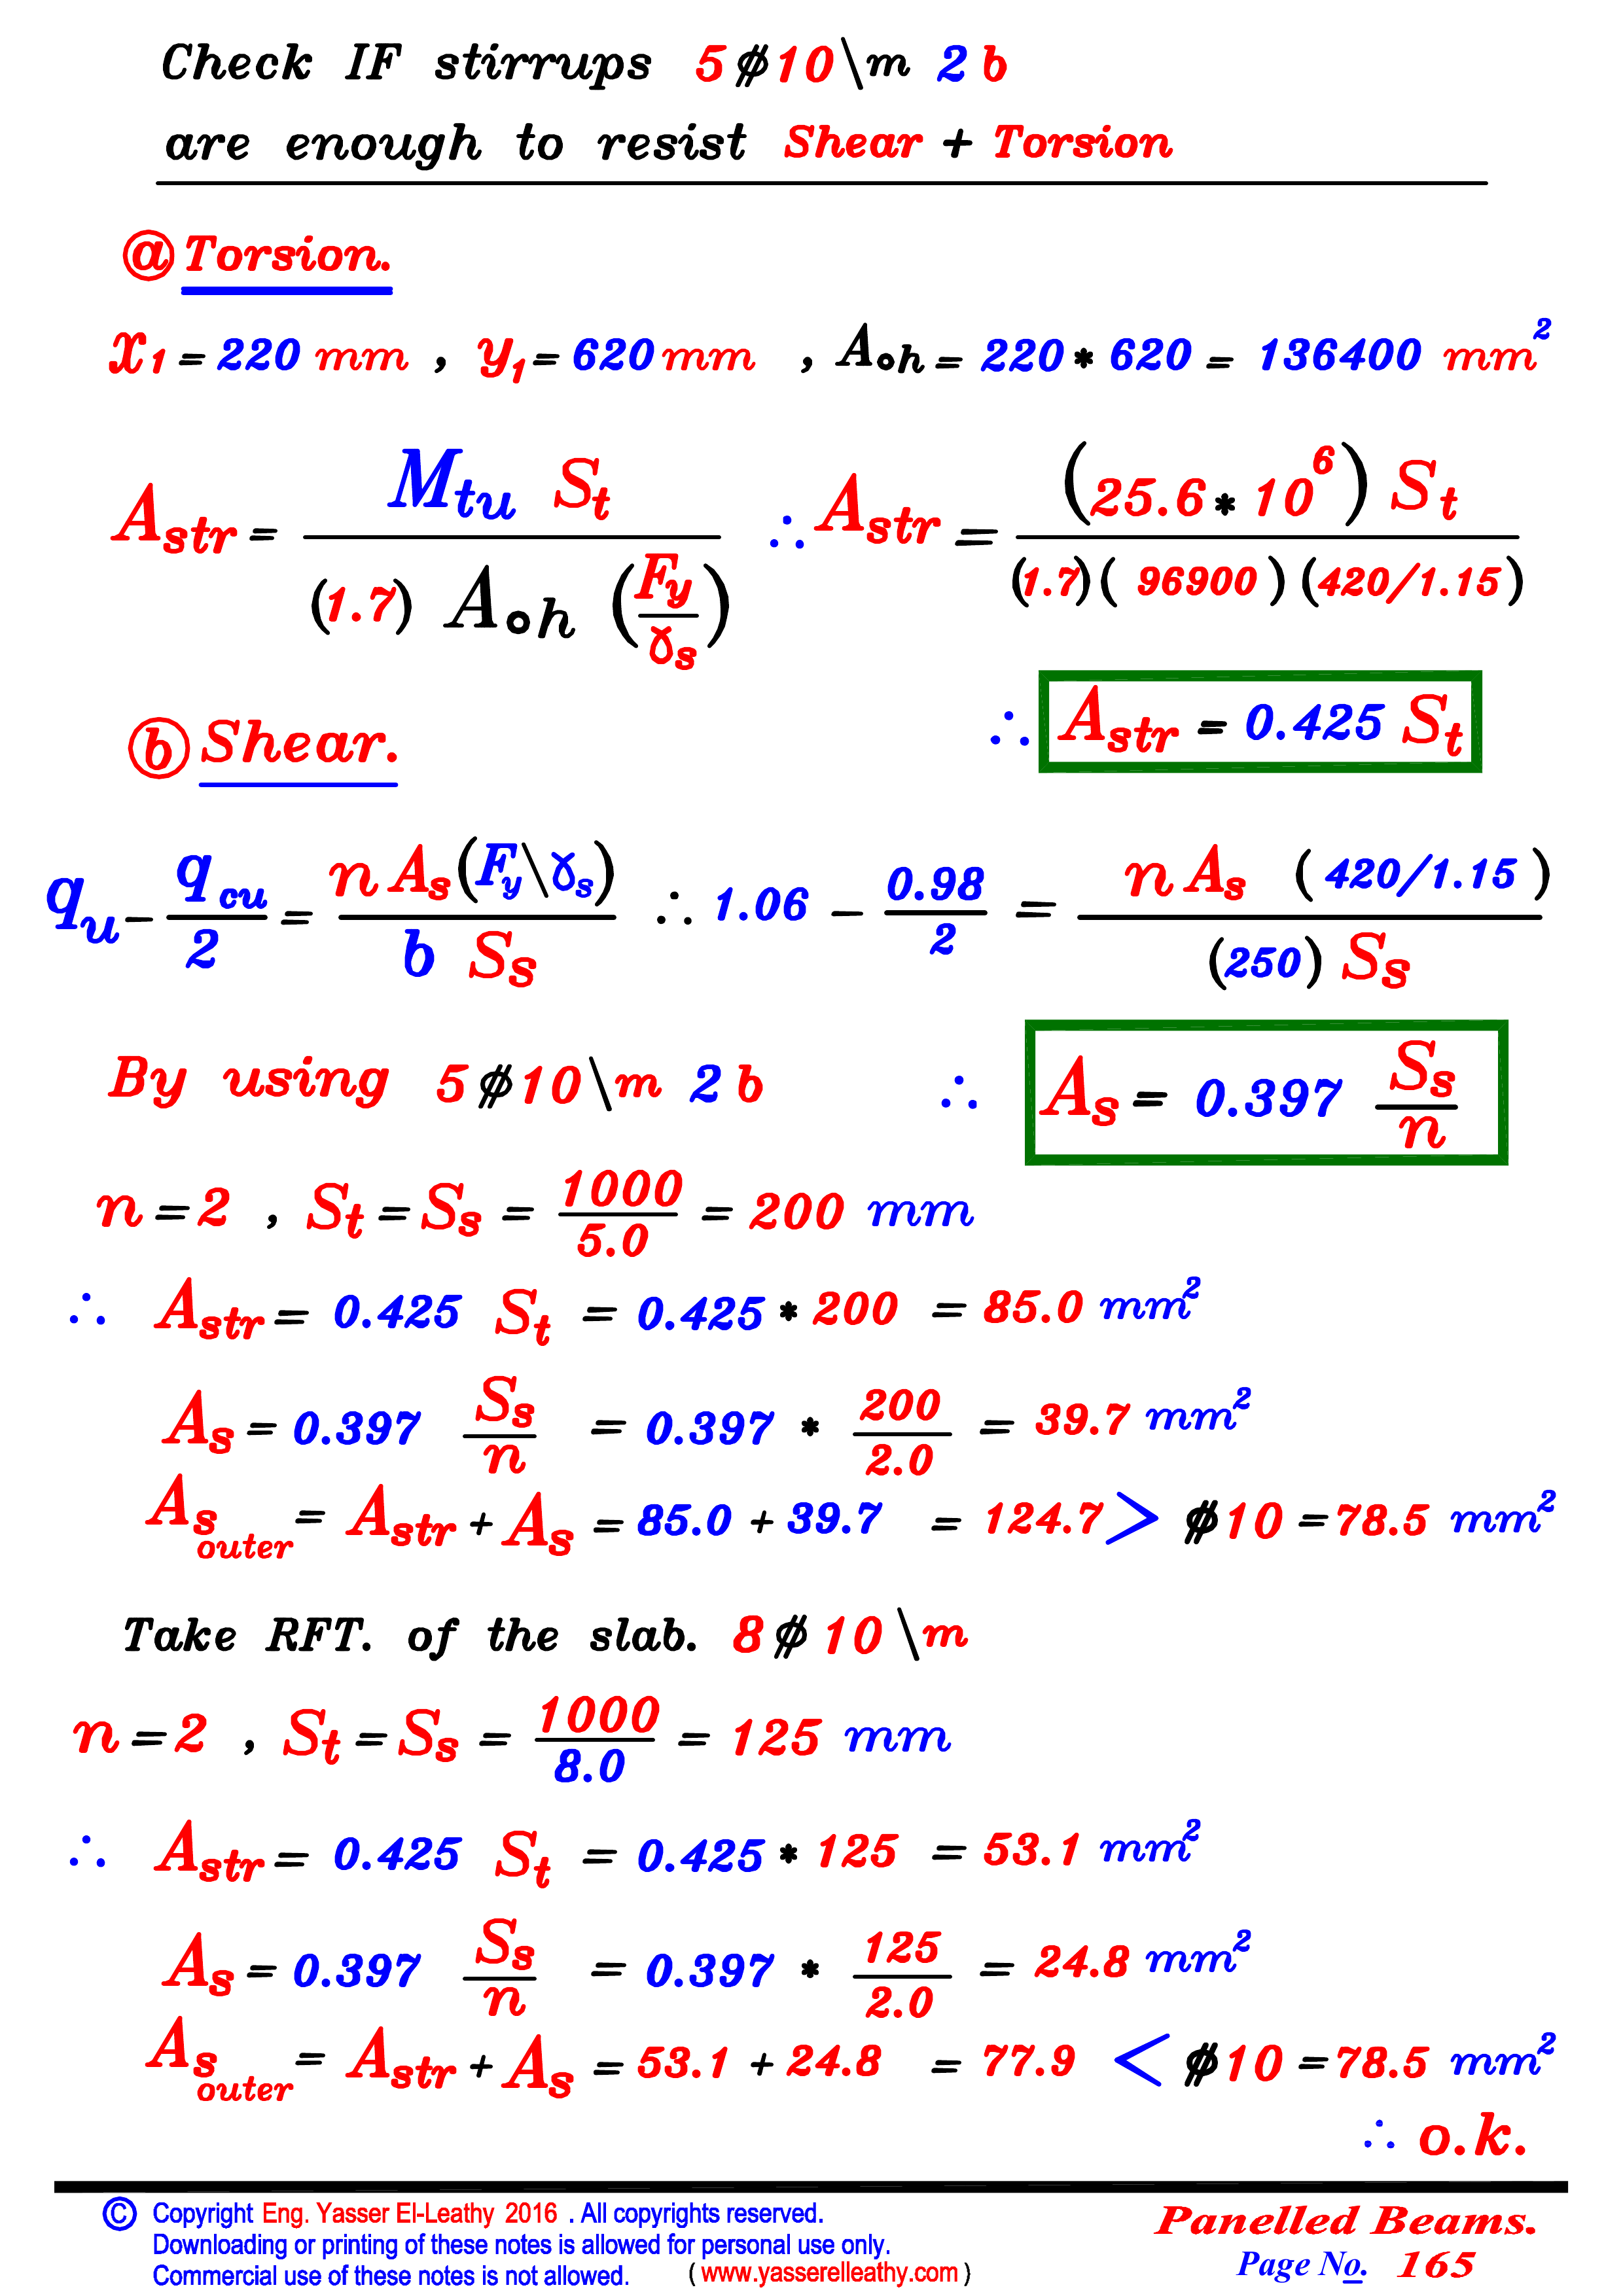 Check IF stirrups 5 ϕ 10 \m 2 b
are enough to resist Shear + Torsion
ⓐ Torsion.
x1 = 220 mm , y1 = 620 mm , Aoh = 220 * 620 = 136400 mm²
Astr = Mtu St / (1.7) Aoh (Fy/γs) ∴ Astr = (25.6 * 10⁶) St / (1.7) ( 96900 ) (420/1.15)
∴ Astr = 0.425 St
ⓑ Shear.
qu - qcu/2 = n As (Fy\γs) / b Ss ∴ 1.06 - 0.98/2 = n As ( 420/1.15 ) / (250) Ss
By using 5 ϕ 10 \m 2 b ∴ As = 0.397 Ss/n
n = 2 , St = Ss = 1000/5.0 = 200 mm
∴ Astr = 0.425 St = 0.425 * 200 = 85.0 mm²
As = 0.397 Ss/n = 0.397 * 200/2.0 = 39.7 mm²
As outer = Astr + As = 85.0 + 39.7 = 124.7 > ϕ 10 = 78.5 mm²
Take RFT. of the slab. 8 ϕ 10 \m
n = 2 , St = Ss = 1000/8.0 = 125 mm
∴ Astr = 0.425 St = 0.425 * 125 = 53.1 mm²
As = 0.397 Ss/n = 0.397 * 125/2.0 = 24.8 mm²
As outer = Astr + As = 53.1 + 24.8 = 77.9 < ϕ 10 = 78.5 mm²
∴ o.k.
© Copyright Eng. Yasser El-Leathy 2016 . All copyrights reserved.
Downloading or printing of these notes is allowed for personal use only.
Commercial use of these notes is not allowed. ( www.yasserelleathy.com )
Panelled Beams.
Page No. 165